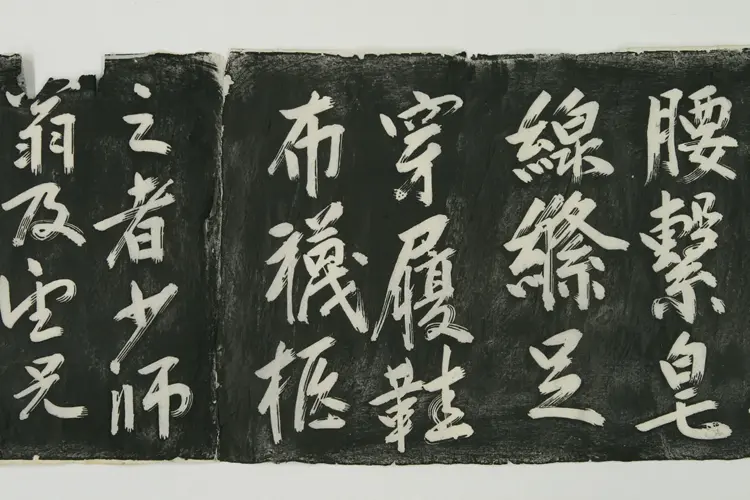 腰繫皂
線縧足
穿履鞋
布襪
之者少師
翁及兄